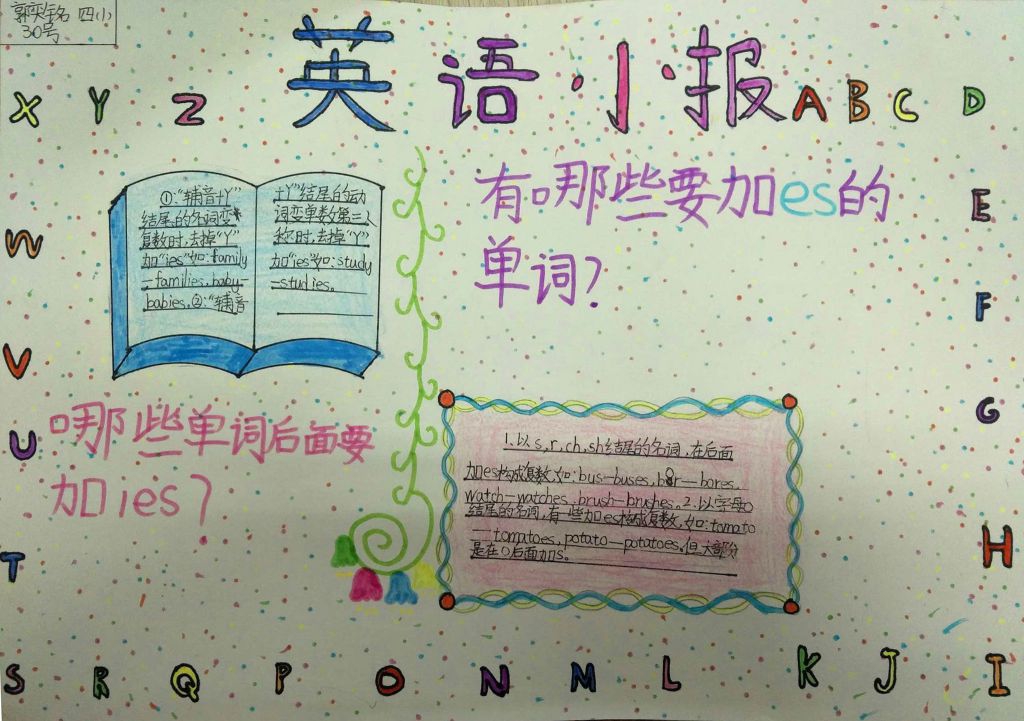 郭奕铭 四(1)
30号
英语小报
A B C D
E
F
G
H
I
J
K
L
M
N
O
P
Q
R
S
T
U
V
W
X Y Z
①:“辅音+Y”
结尾的名词变
复数时,去掉“Y”
加“ies”如:family
—families,baby—
babies.②:“辅音
+Y”结尾的动
词变单数第三人
称时,去掉“Y”
加“ies”如:study
—studies。
有哪些要加es的
单词?
哪些单词后面要
加ies?
1.以s,r,ch,sh结尾的名词,在后面
加es构成复数,如:bus—buses,
watch—watches,brush—brushes。2.以字母O
结尾的名词,有一些加es构成复数,如:tomato
—tomatoes,potato—potatoes。但大部分
是在O后面加s。